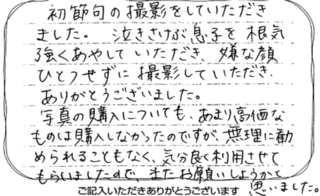 初節句の撮影をしていただき
ました。泣きさけぶ息子を根気
強くあやしていただき、嫌な顔
ひとつせずに撮影していただき、
ありがとうございました。
写真の購入についても、あまり高価な
ものは購入しなかったのですが、無理に勧
められることもなく、気分良く利用させて
もらいましたので、またお願いしようかと
思いました。
ご記入いただきありがとうございます